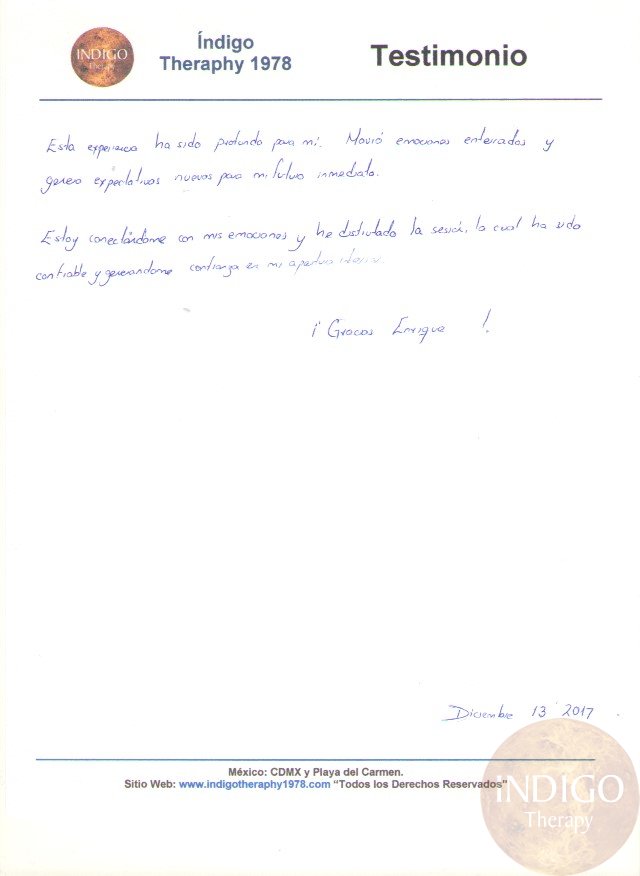 INDIGO
Therapy
Índigo
Theraphy 1978
Testimonio
Esta experiencia ha sido profunda para mi. Movió emociones enterradas y
genero expectativas nuevas para mi futuro inmediato.
Estoy conectándome con mis emociones y he disfrutado la sesión, la cual ha sido
confiable y generandome confianza en mi apertura interior.
¡ Gracias Enrique !
Diciembre 13 2017
México: CDMX y Playa del Carmen.
Sitio Web: www.indigotheraphy1978.com “Todos los Derechos Reservados”
INDIGO
Therapy